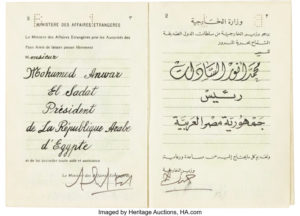 MINISTERE DES AFFAIRES ETRANGERES
Le Ministre des Affaires Etrangères prie les Autorités des
Pays Amis de laisser passer librement
Monsieur
Mohamed Anwar
El Sadat
Président
de La République Arabe
d'Egypte
et de lui accorder toute aide et assistance
Le Ministre des Affaires Etrangères
2
وزارة الخارجية
محمد أنور السادات
رئيس
جمهورية مصر العربية
وزير الخارجية
Imaged by Heritage Auctions, HA.com